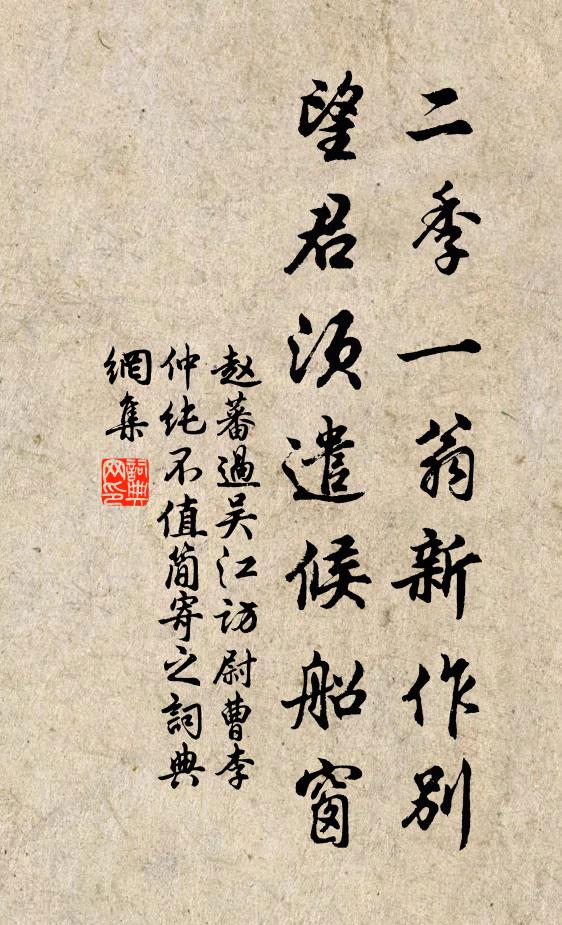 二季一翁新作別
望君須遣候船窗
赵蕃過吴江訪尉曹李
仲純不值簡寄之詞典
網集
詞典
网印